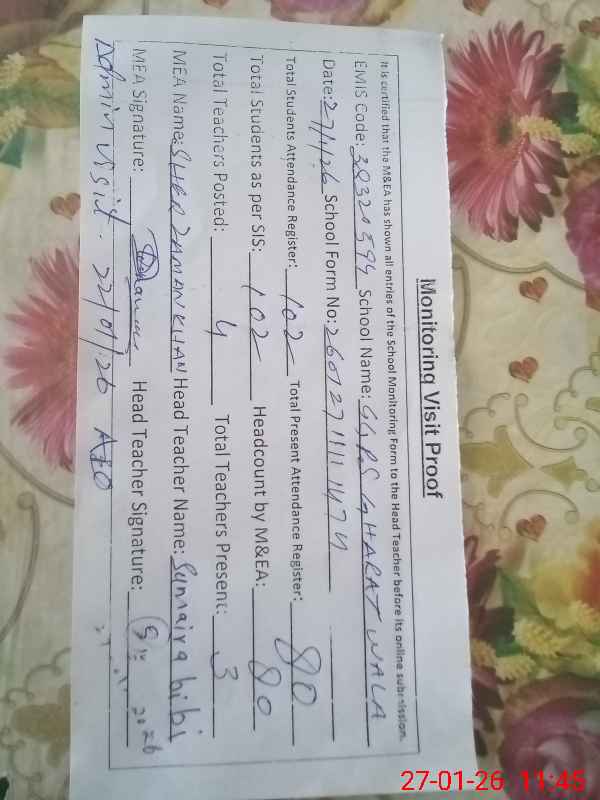 Monitoring Visit Proof
It is certified that the M&EA has shown all entries of the School Monitoring Form to the Head Teacher before its online submission.
EMIS Code: 38320594 School Name: GGPS GHARAT WALA
Date: 27/1/26 School Form No: 260127111114
Total Students Attendance Register: 102 Total Present Attendance Register: 80
Total Students as per SIS: 102 Headcount by M&EA: 80
Total Teachers Posted: 4 Total Teachers Present: 3
MEA Name: SHER ZAMAN KHAN Head Teacher Name: Sumaiya bibi
MEA Signature: Head Teacher Signature:
Admin visit. 22/01/26 AEO
27-01-26 11:45